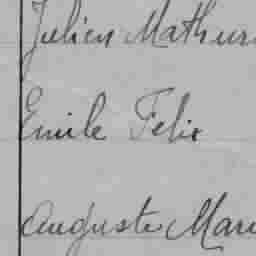 Julien Mathur
Emile Felix
Auguste Mari